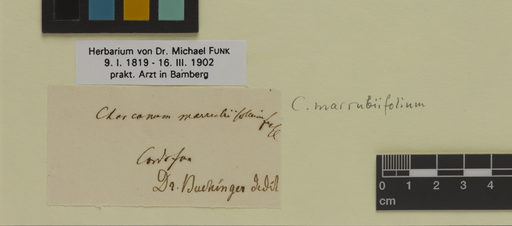 Herbarium von Dr. Michael FUNK
9. I. 1819 - 16. III. 1902
prakt. Arzt in Bamberg
Chascanum marrubiifolium
C. marrubiifolium
Cordofan
Dr. Buchinger dedit
0 1 2 3 4
cm